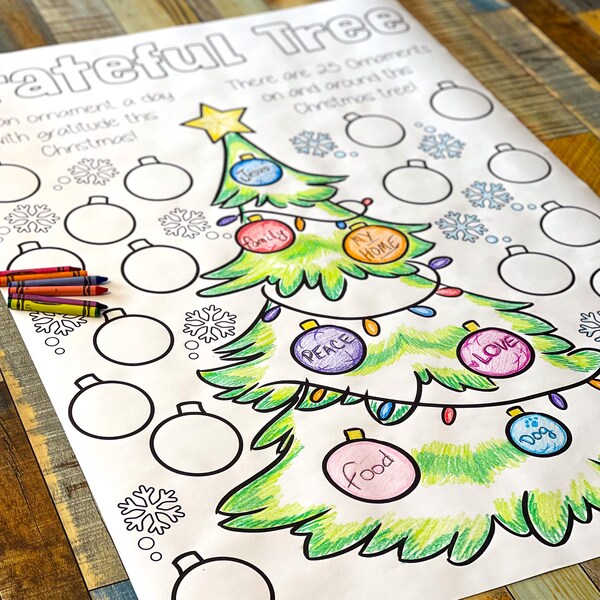 rateful Tree
an ornament a day
with gratitude this
Christmas!
There are 25 Ornaments
on and around this
Christmas tree!
Jesus
Family
MY
HOME
PEACE
LOVE
Food
Dog